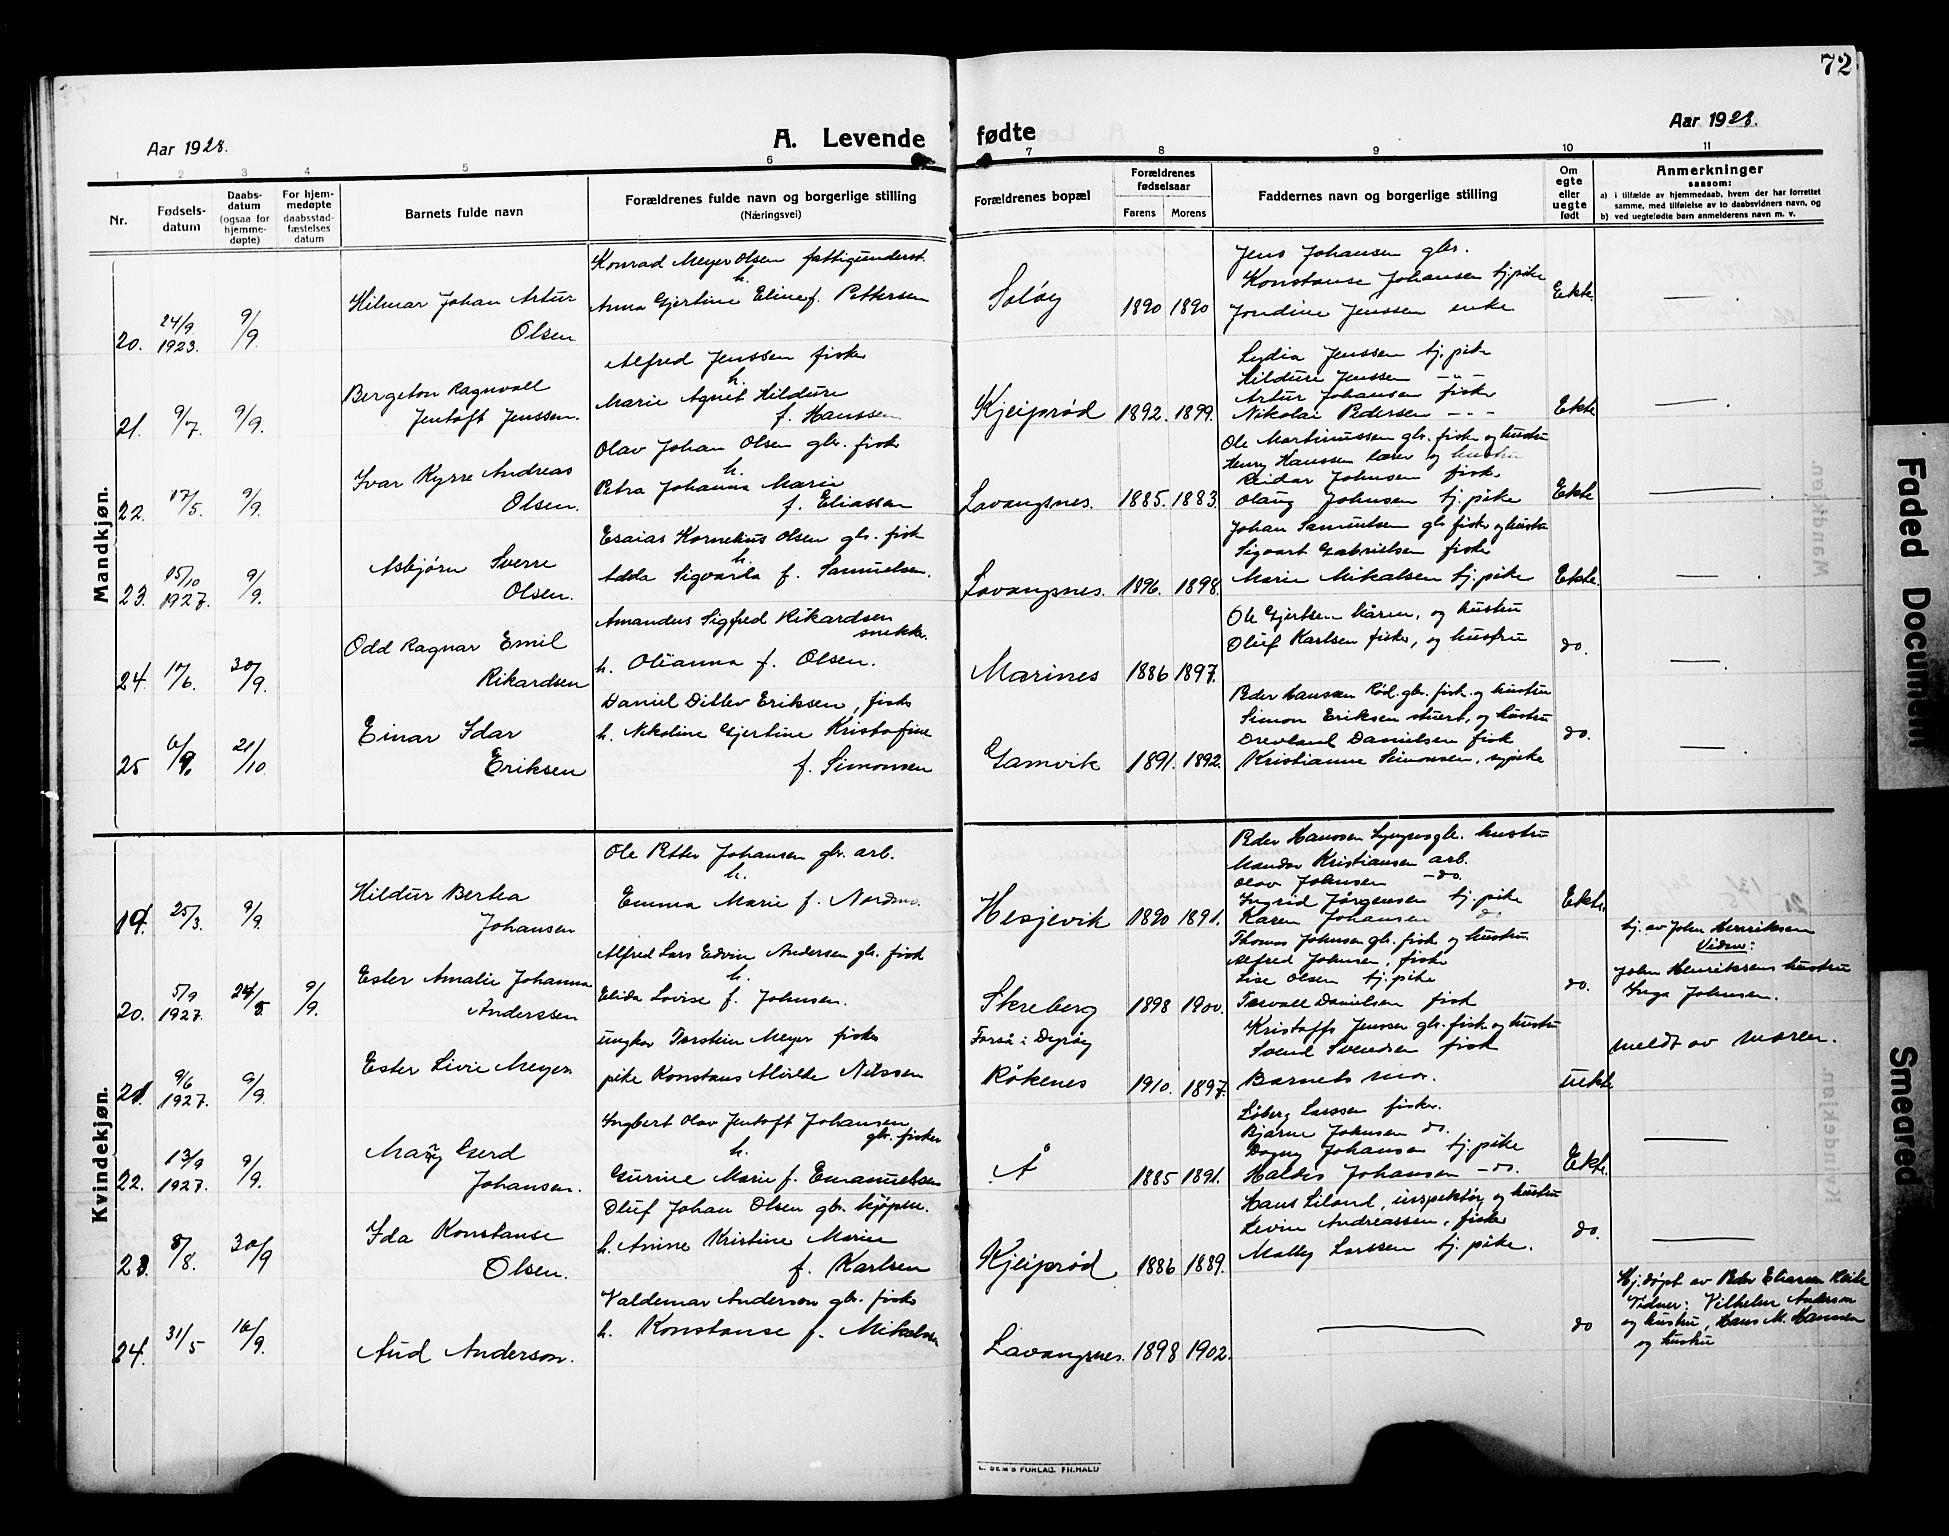 72
Aar 1928.
A. Levende fødte
Aar 1928.
1 2 3 4 5 6 7 8 9 10 11
Nr.
Fødsels-
datum
Daabs-
datum
(ogsaa for
hjemme-
døpte)
For hjem-
medøpte
daabsstad-
fæstelses
datum
Barnets fulde navn
Forældrenes fulde navn og borgerlige stilling
(Næringsvei)
Forældrenes bopæl
Forældrenes
fødselsaar
Farens Morens
Faddernes navn og borgerlige stilling
Om
egte
eller
uegte
født
Anmerkninger
saasom:
a) i tilfælde av hjemmedaab, hvem der har forrettet
samme, med tilføielse av to daabsvidners navn, og
b) ved uegtefødte barn anmelderens navn m. v.
Mandkjøn.
20. 24/9 1923. 9/9.
Hilmar Johan Artur
Olsen
Konrad Meyer Olsen fattigunderst.
h.
Anna Gjertine Eline f. Pettersen
Soløy 1890 1890
Jens Johansen gbr.
Konstanse Johansen tj.pike
Jondine Jenssen enke
Ekte
21. 9/7. 9/9.
Bergeton Ragnvall
Jentoft Jenssen.
Alfred Jenssen fisker
h.
Marie Agnet Hildure
f. Hanssen
Kjeiprød 1892. 1899.
Lydia Jenssen tj.pike
Hildure Jenssen - " -
Artur Johansen fisker
Nikolai Pedersen - " -
Ekte
22. 17/5. 9/9.
Ivar Kyrre Andreas
Olsen.
Olav Johan Olsen gbr. fisker
h.
Petra Johanna Marie
f. Eliassen
Lavangsnes. 1885. 1883.
Ole Martinussen gbr. fisker og hustru
Henry Hanssen lærer og hustru
Reidar Johnsen fisker
Olaug Johnsen tj.pike
Ekte
23. 15/10 1927. 9/9.
Asbjørn Sverre
Olsen.
Esaias Kornelius Olsen gbr. fisk
h.
Adda Sigvarda f. Samuelsen.
Lavangsnes. 1896. 1898.
Johan Samuelsen gbr fisker og hustru
Sigvart Gabrielsen fisker
Marie Mikalsen tj.pike
Ekte.
24. 17/6. 30/9.
Odd Ragnar Emil
Rikardsen
Amandus Sigfred Rikardsen
snekker.
h. Olianna f. Olsen.
Marines 1886 1897.
Ole Gjertsen Kåren, og hustru
Oluf Karlsen fisker, og hustru
do.
25 6/9. 21/10.
Einar Idar
Eriksen
Daniel Ditlev Eriksen, fisker
h. Nikoline Gjertine Kristofine
f. Simonsen
Gamvik 1891. 1892.
Peder Hanssen Rød. gbr. fisk. og hustru
Simon Eriksen stuert, og hustru
Drevland Danielsen fisk
Kristianne Simonsen, sypike
do.
Kvindekjøn.
19. 25/3. 9/9.
Hildur Bertea
Johansen
Ole Petter Johansen gbr. arb.
h.
Emma Marie f. Nordmo.
Hesjevik 1890 1891.
Peder Hanssen gbr. hustru
Mandor Kristiansen arb.
Olav Johnsen - do.
Ingrid Jørgensen tj.pike
Karen Johansen do
Ekte.
20. 5/9 1927. 24/5. 9/9.
Ester Amalie Johanna
Anderssen
Alfred Lars Edvin Andersen gbr. fisk
h.
Elida Lovise f. Johnsen.
Skreberg 1898 1900.
Thomas Johnsen gbr. fisk og hustru.
Alfred Johnsen, fisker
Lise Olsen tj.pike
Torvall Danielsen fisk
do.
hj. av John Henriksen
Vidner:
John Henriksens hustru
Inga Johnsen.
21. 9/6 1927. 9/9.
Ester Livie Meyer
ungkar Torstein Meyer fisker
pike Konstans Alvilde Nilssen
Forså i Dyrøy
Røkenes 1910. 1897.
Kristoffer Jenssen gbr. fisk og hustru
Svend Svendsen fisk
Barnets mor.
uekte
meldt av moren.
22. 13/9 1927. 9/9.
Mary Gerd
Johansen.
Ingbert Olav Jentoft Johansen
gbr. fisker
h.
Gurine Marie f. Emanuelsen
Å 1885 1891.
Løberg Larssen fisker.
Bjarne Johnsen do.
Dagny Johansen tj.pike
Haldis Johansen - do.
Ekte.
23. 8/8. 30/9
Ida Konstanse
Olsen.
Oluf Johan Olsen gbr. kjøpm.
h. Anine Kristine Marie
f. Karlsen
Kjeiprød 1886 1889.
Hans Liland, inspektør, og hustru
Levin Andreassen, fisker
Mally Larssen tj. pike.
do.
24. 31/5 16/9.
Aud Anderson.
Valdemar Anderson gbr. fisker
h. Konstanse f. Mikalsen
Lavangsnes. 1898 1902.
do
Hj.døpt av Peder Eliassen
Vidner: Vilhelm Anderson
og hustru, Hans M. Hanssen
og hustru
E. SEM'S FORLAG. FR.HALD
Faded Document
Smeared